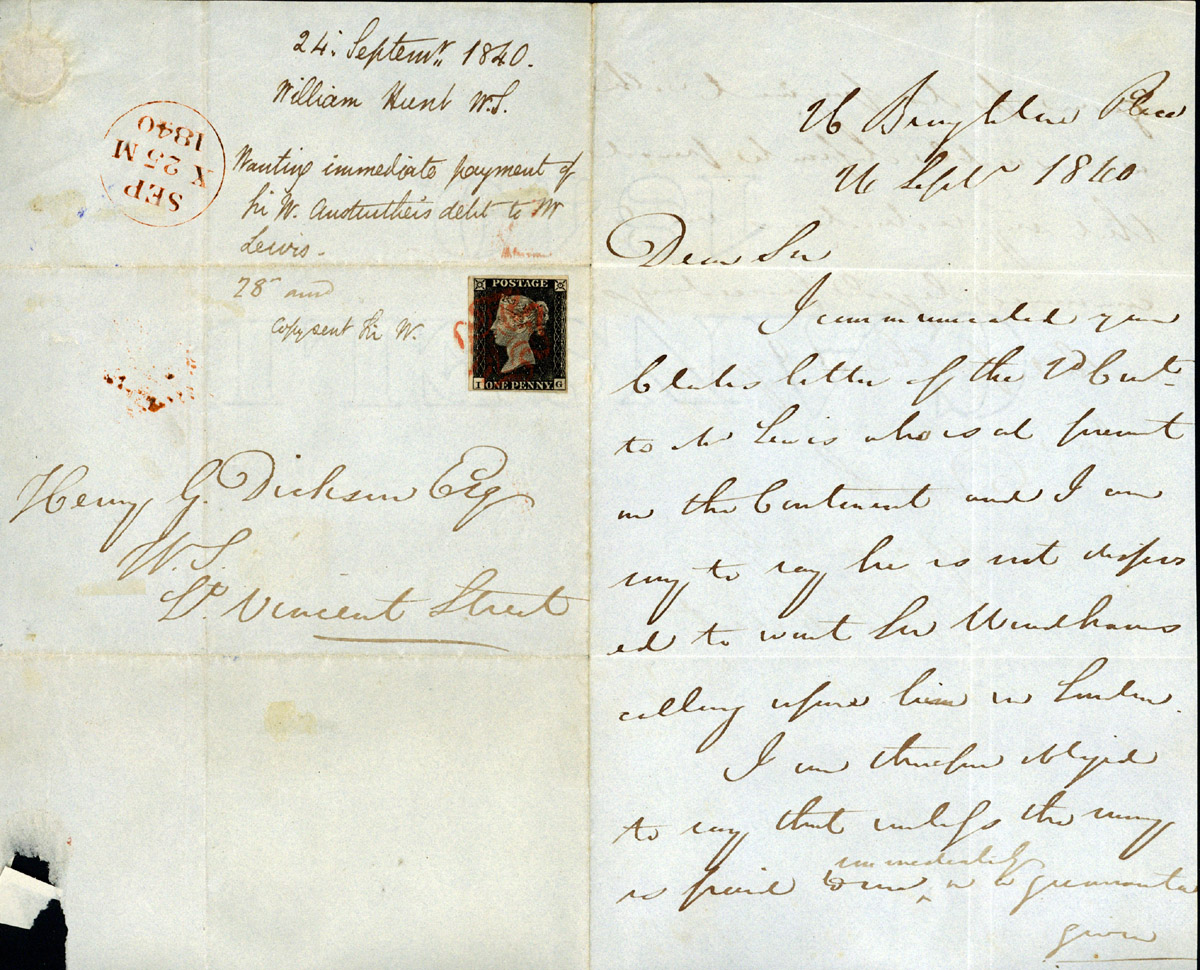 24: Septemr. 1840.
William Hunt W.S.
Wanting immediate payment of
Sir W. Anstruther's debt to Mr
Lewis.
28
copy sent Sir W.
SEP
X 25 M
1840
POSTAGE
I ONE PENNY G
Henry G. Dickson Esq
W.S.
St. Vincent Street
26 Broughton Place
24 Septr 1840
Dear Sir
I communicated your
Clerks letter of the
to Mr Lewis who is at present
on the Continent and I am
sorry to say he is not dispos
ed to wait Sir Windhams
calling upon him in London.
I am therefore obliged
to say that unless the money
is paid to me immediately or a guarantee
given